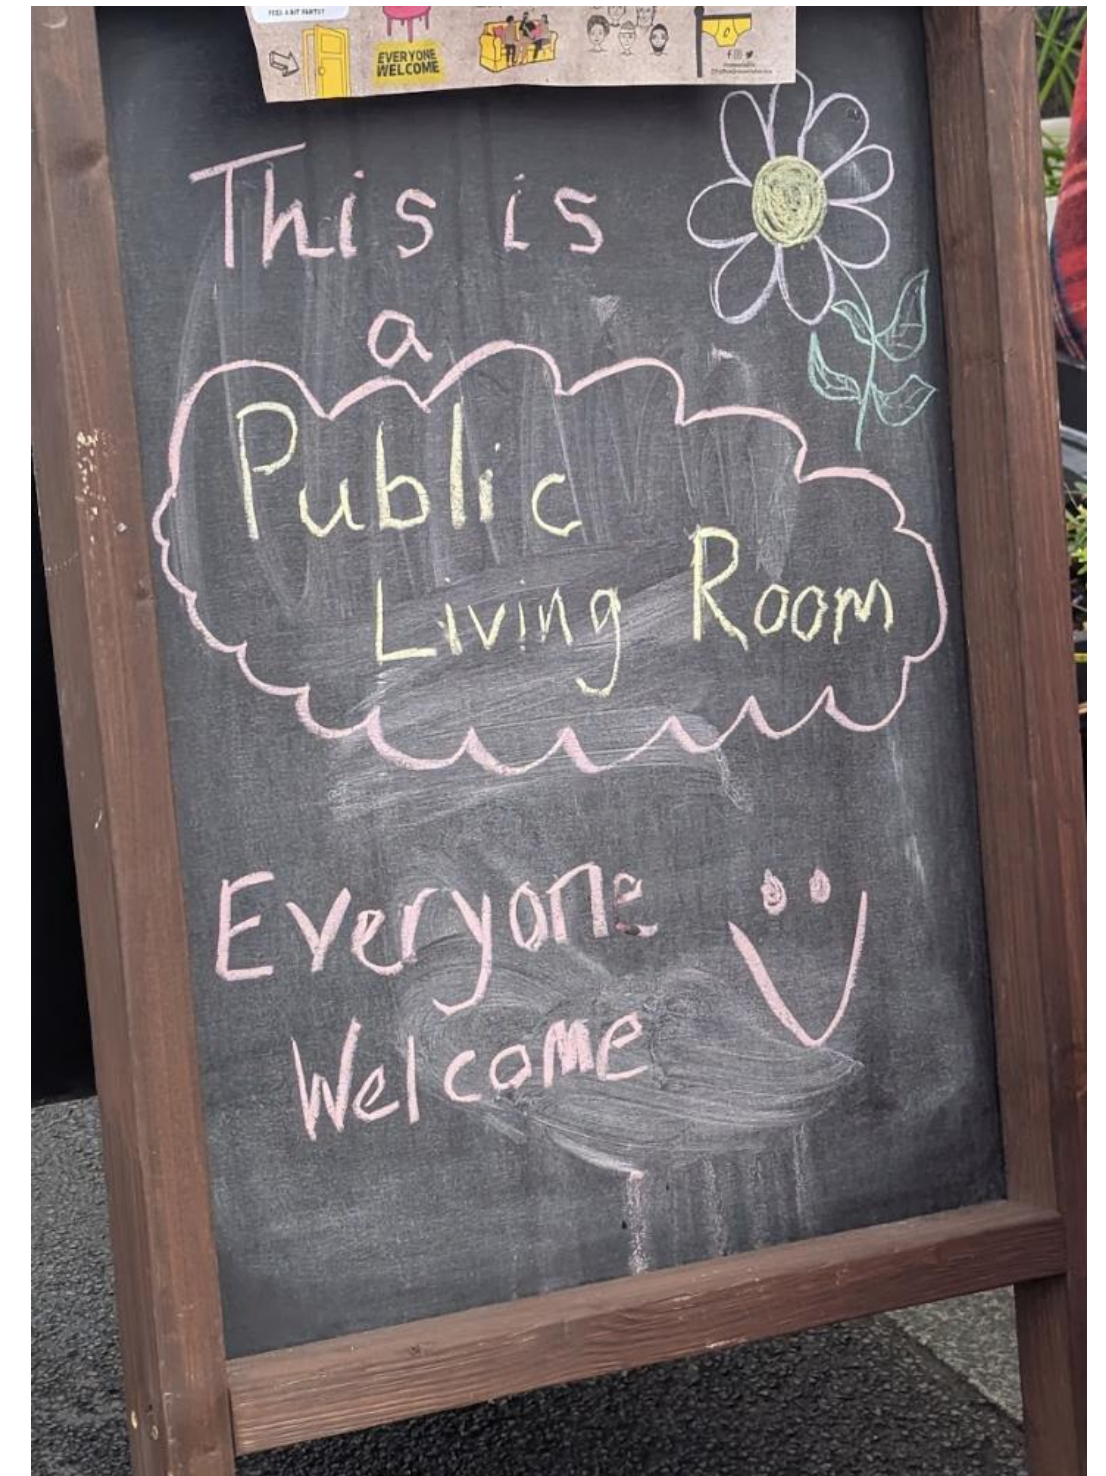 EVERYONE
WELCOME
This is
a
Public
Living Room
Everyone
Welcome